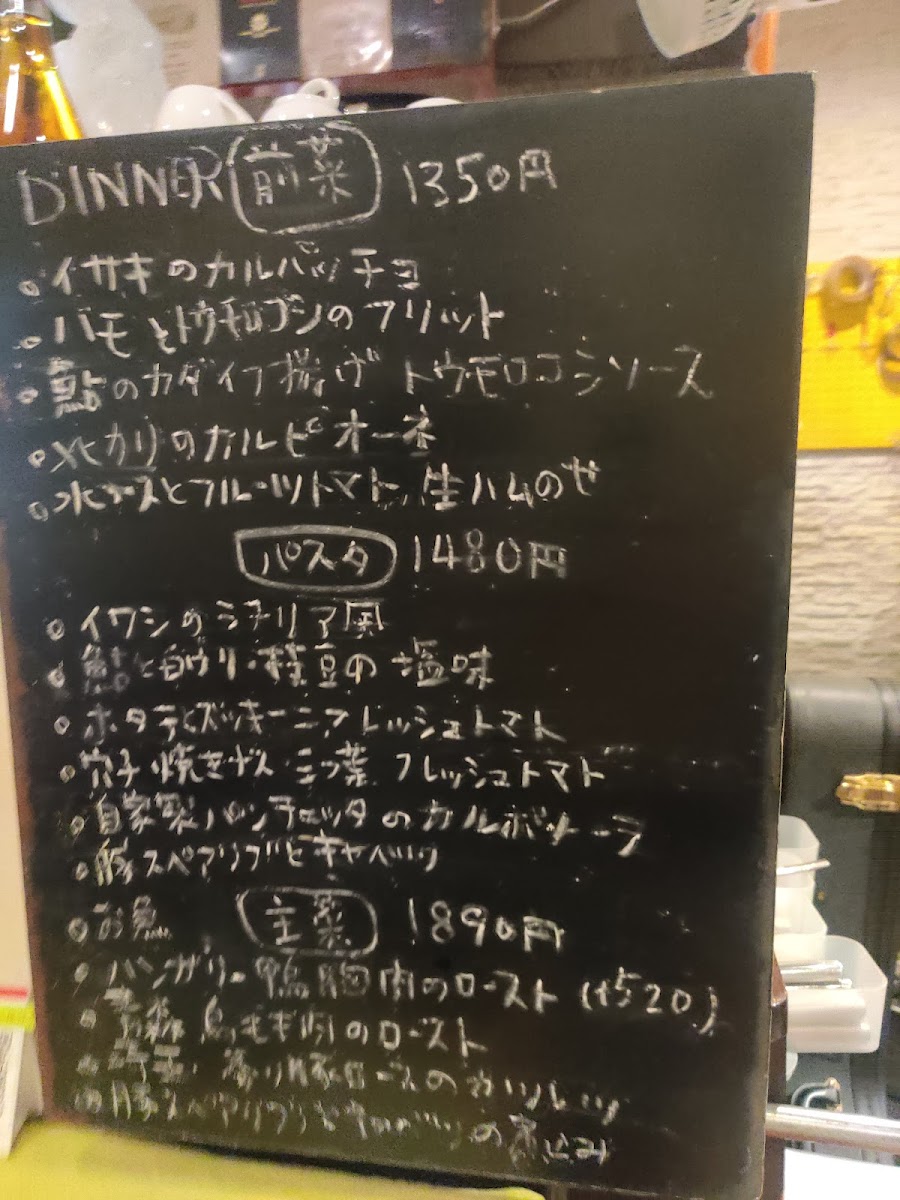 DINNER 前菜 1350円
。イサキのカルパッチョ
。ハモとトウモロコシのフリット
。鮎のカダイフ揚げ トウモロコシソース
。メヒカリのカルピオーネ
。水ナスとフルーツトマト 生ハムのせ
パスタ 1480円
。イワシのシチリア風
。と白ウリ・枝豆の塩味
。ホタテとズッキーニ フレッシュトマト
。穴子 焼きナス・三つ葉 フレッシュトマト
。自家製パンチェッタのカルボナーラ
。豚スペアリブとキャベツ
。お魚 主菜 1890円
。ハンガリー鴨胸肉のロースト (+520)
。青森 鳥もも肉のロースト
。埼玉 豚ロースのカツレツ
。豚スペアリブとキャベツの煮込み